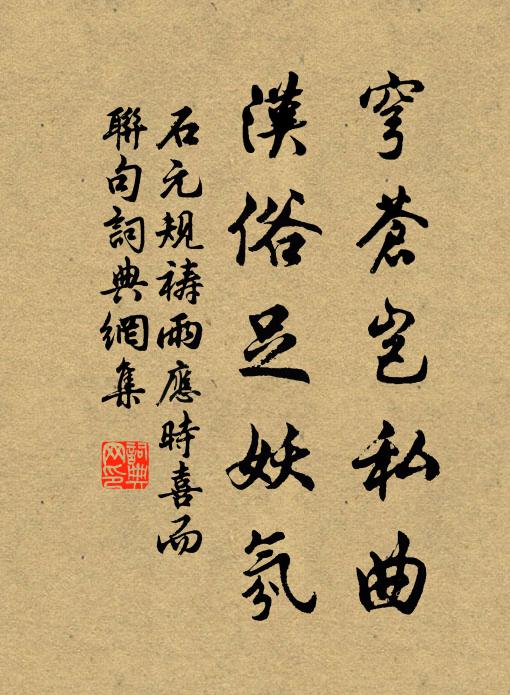 穹蒼豈私曲
漢俗足妖氛
石元規禱雨應時喜而
聯句詞典網集
詞典
网印